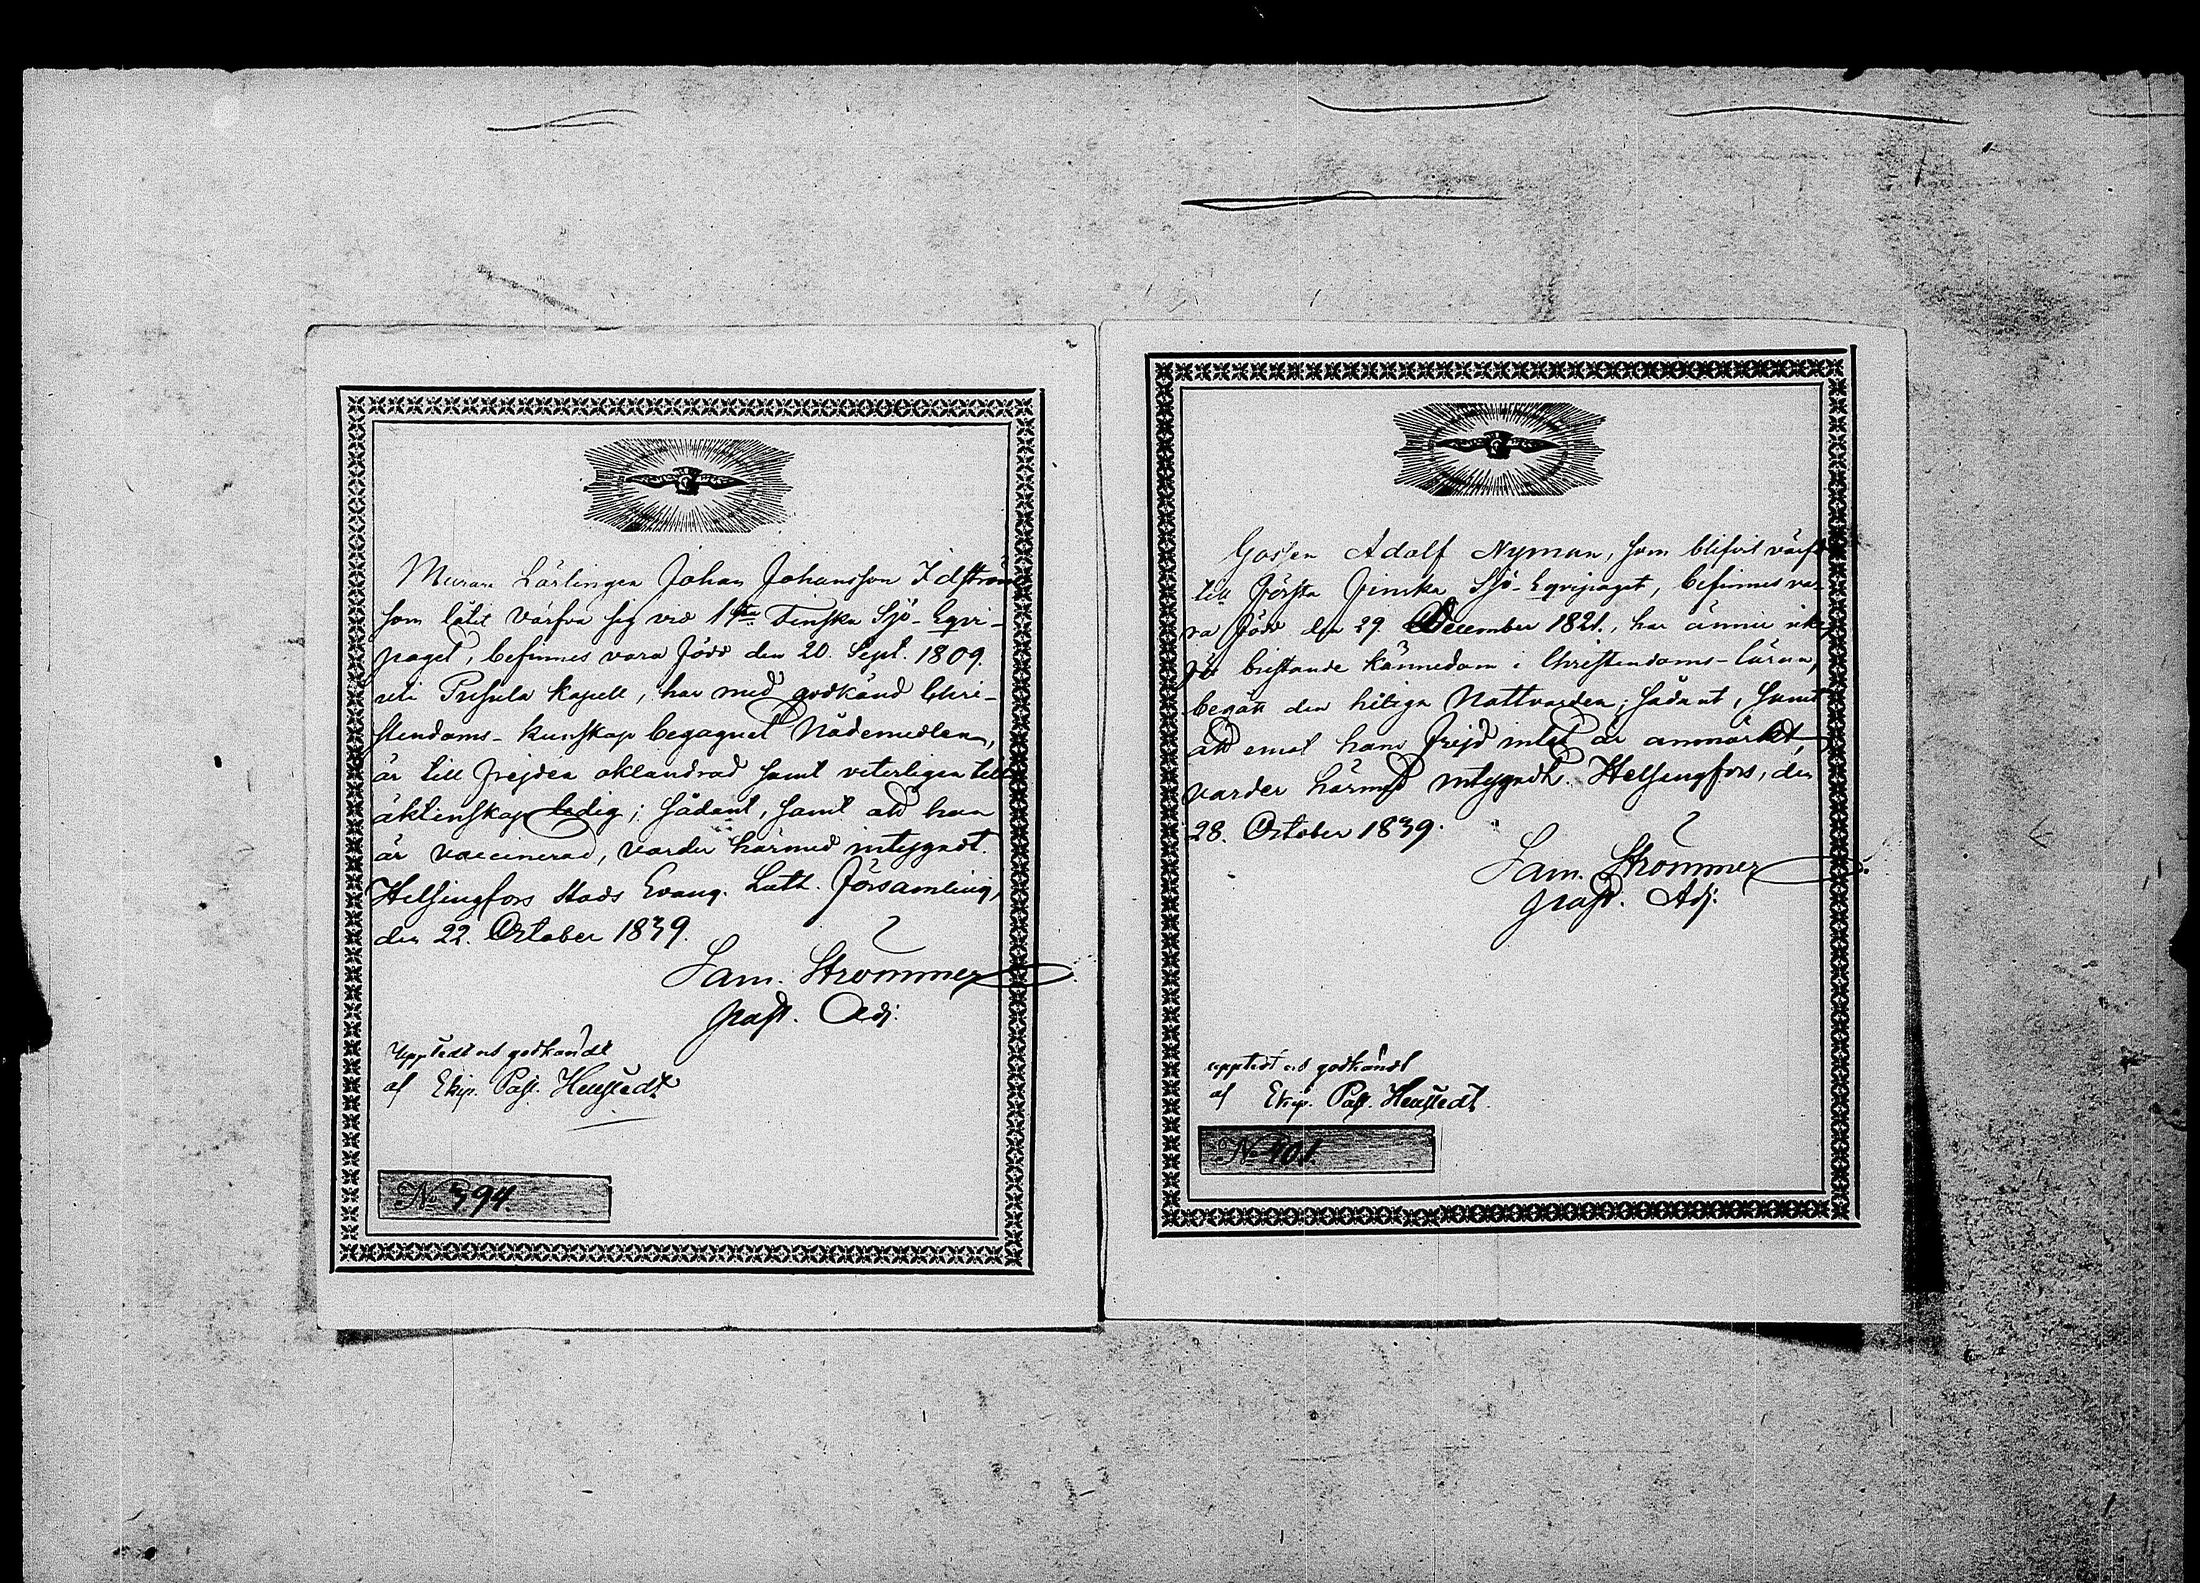 Murare Lärlingen Johan Johansson Idström
som låtit värfva sig vid 1sta Finska Sjö-Eqvi-
paget, befinnes vara född den 20. Sept. 1809.
uti Pusula kapell, har med godkänd Chri-
stendoms-kunskap begagnat Nådemedlen,
är till frejden oklandrad samt veterligen till
äktenskap ledig; sådant, samt att han
är vaccinerad, varder härmed intygadt.
Helsingfors Stads Evang. Luth. Församling,
den 22. October 1839.
Sam. Strömmer
past. Adj.
Upptedt och godkändt
af Ekip. Past. Heustedt
No 394.
Gossen Adolf Nyman, som blifvit värfd
till Första Finska Sjö-Eqvipaget, befinnes va-
ra född den 29. December 1821., har ännu ick
för bristande kännedom i Christendoms-läran,
begått den heliga Nattvarden; sådant, samt
att emot hans frejd intet är anmärkt,
varder härmed intygadt. Helsingfors, den
28. October 1839.
Sam. Strömmer
past. Adj.
upptedt och godkändt
af Ekip. Past. Heustedt.
No 401.